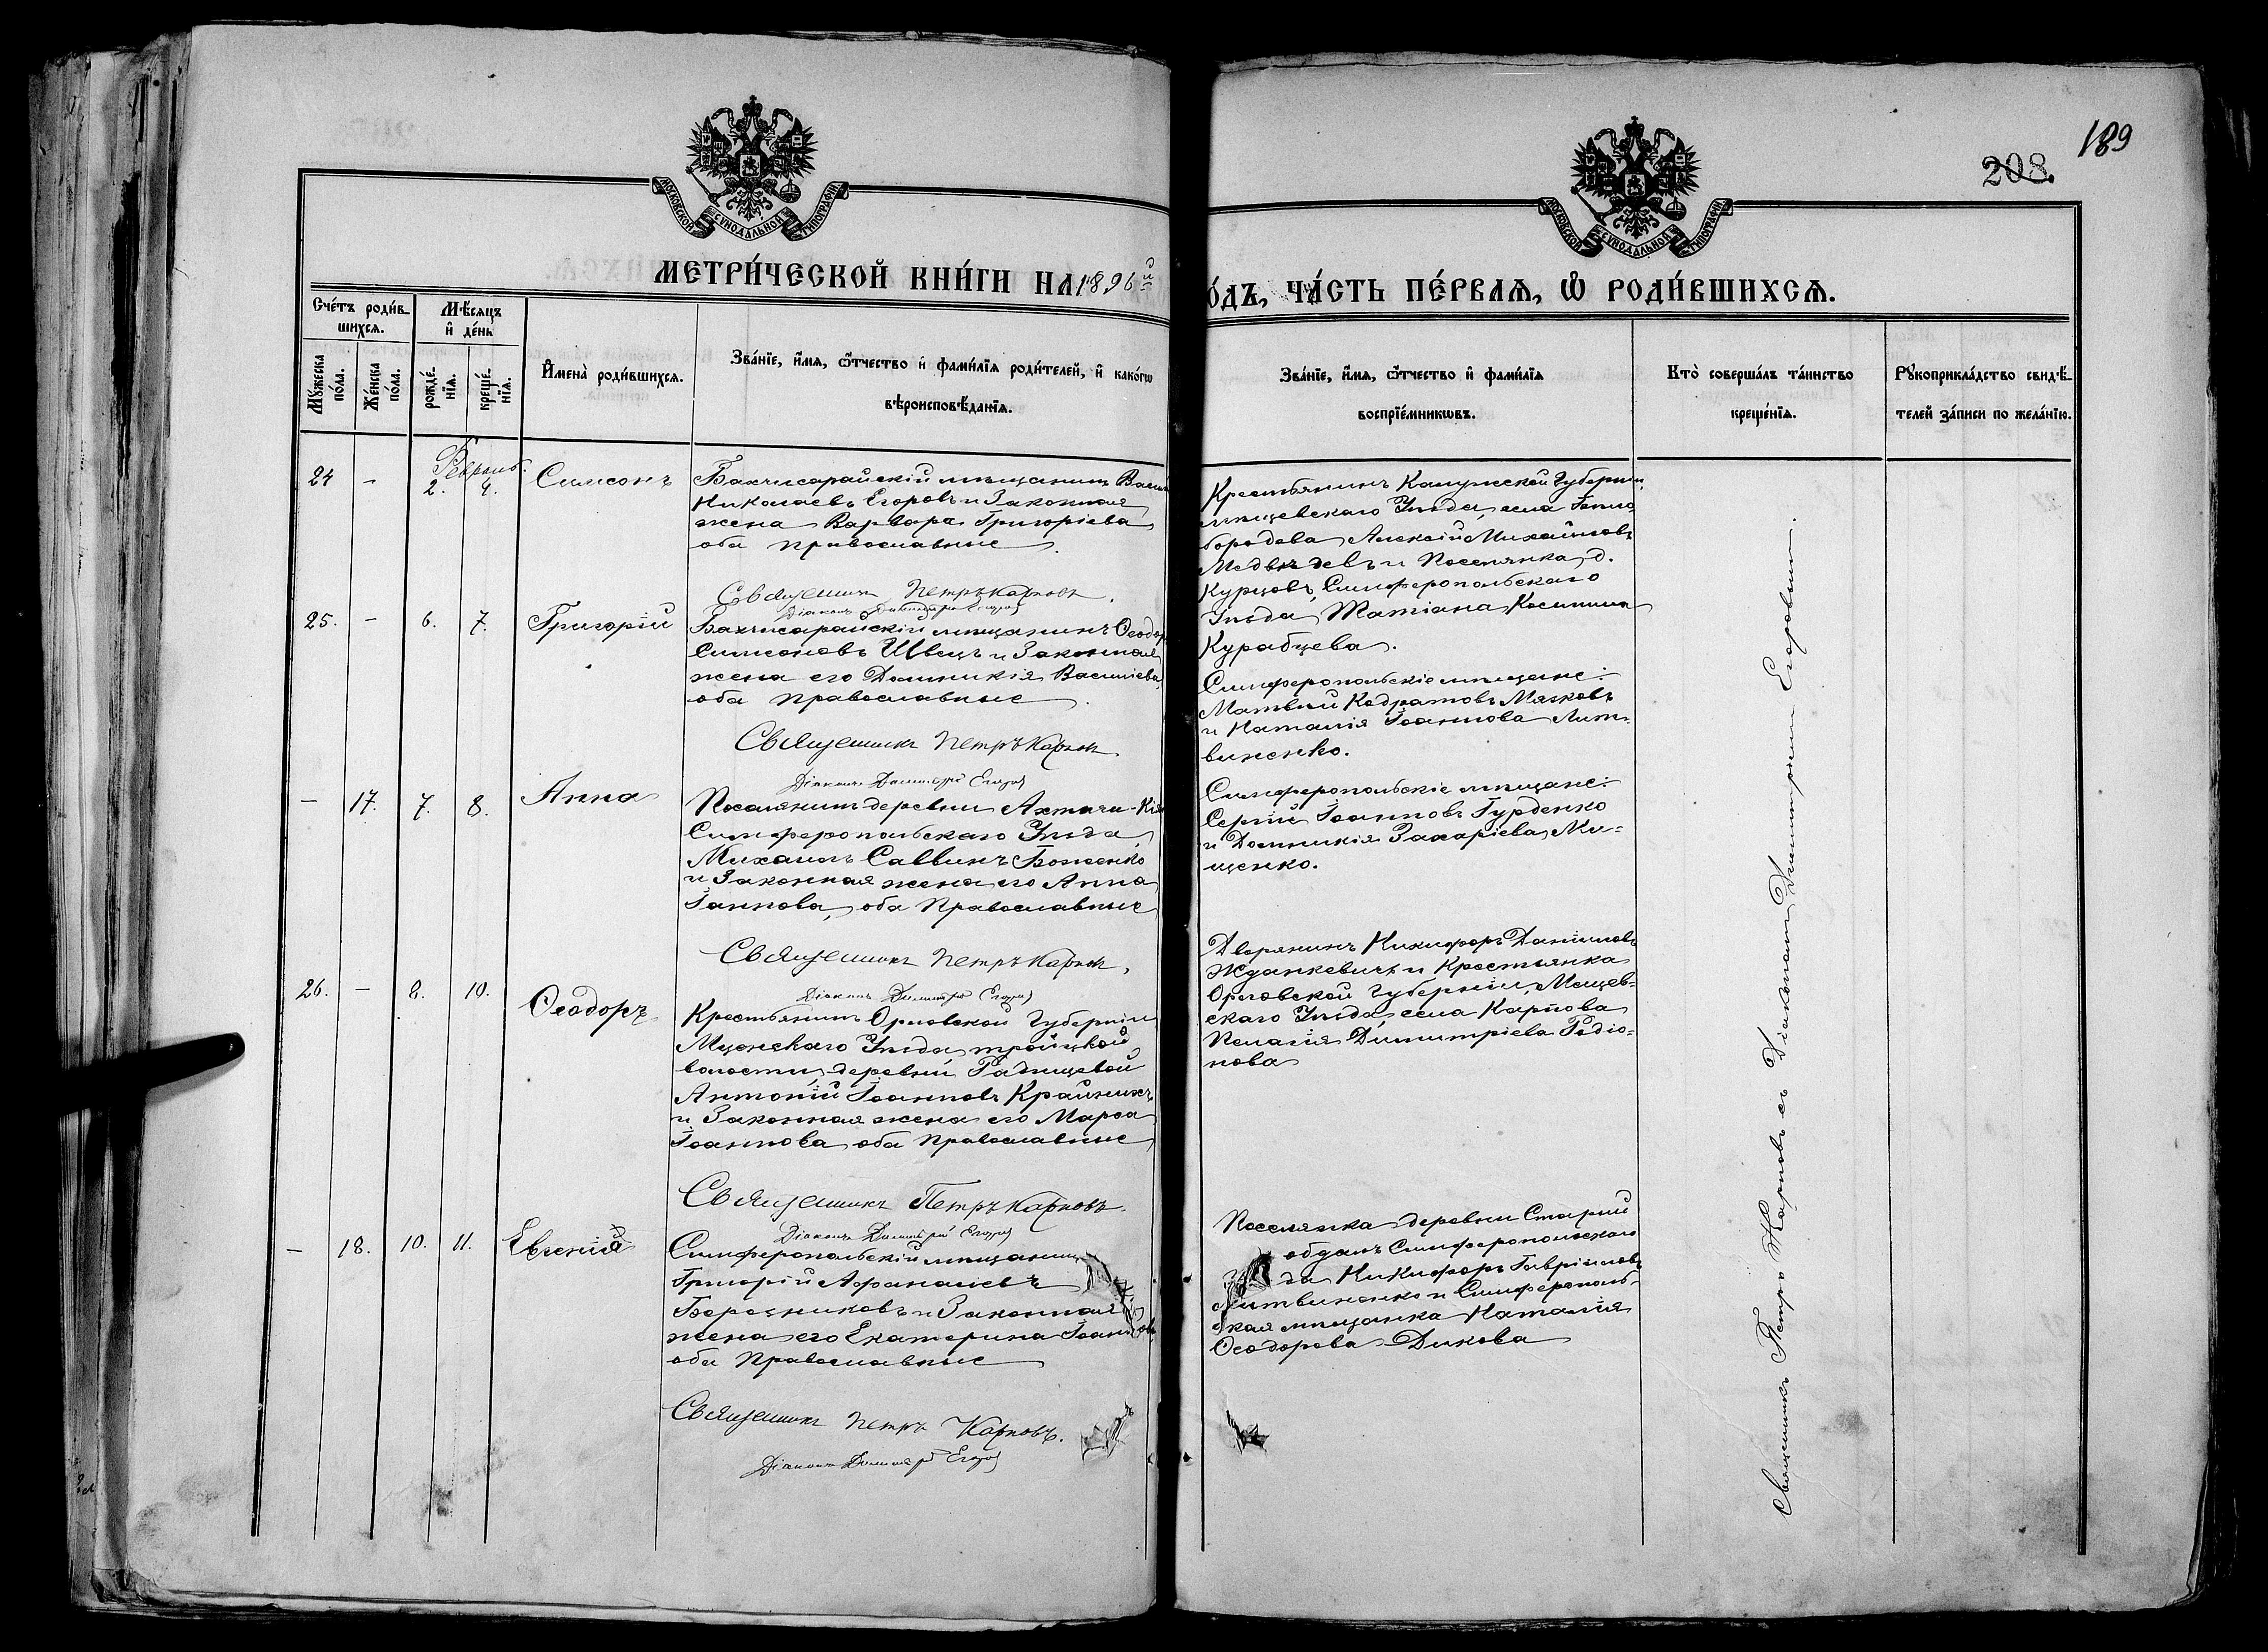 189
208.
МОСКОВСКОЙ СУНОДАЛЬНОЙ ТИПОГРАФІИ
МОСКОВСКОЙ СУНОДАЛЬНОЙ ТИПОГРАФІИ
МЕТРИ́ЧЕСКОЙ КНИ́ГИ НА 1896й
О́ДЪ, ЧА́СТЬ ПЕ́РВАѦ, Ѽ РОДИ́ВШИХСѦ.
Сче́тъ роди́в-
шихсѧ.
Мѣ́сѧцъ
и҆ де́нь
Мꙋ́жеска по́ла.
Же́нска по́ла.
рожде́-нїѧ.
креще́-нїѧ.
И҆мена̀ роди́вшихсѧ.
Зва́нїе, и҆́мѧ, ѻ҆́тчество и҆ фами́лїѧ роди́телей, и҆ како́гѡ
вѣроисповѣ́данїѧ.
Зва́нїе, и҆́мѧ, ѻ҆́тчество и҆ фами́лїѧ
воспрїе́мникѡвъ.
Кто̀ соверша́лъ та́инство
креще́нїѧ.
Рꙋкоприкла́дство свидѣ́-
телей за́писи по жела́нїю.
Февраль.
24 - 2. 4. Симеонъ
Бахчисарайскій мѣщанинъ
Николаевъ Егоровъ и Законная
жена Варвара Григоріева
оба православные.
Священникъ Петръ Карповъ.
Діаконъ Димитрій Егоров
Крестьянинъ Калужской Губерніи
Алексій Михайловъ
Медвѣдевъ и Поселянка д.
Курцовъ, Симферопольскаго
Уѣзда Татіана
Курабцева.
25. - 6. 7. Григорій
Бахчисарайскій мѣщанинъ Ѳеодор
Симеоновъ Швецъ и Законная
жена его Домникія Васильева,
оба православные.
Священникъ Петръ Карпов.
Діаконъ Димитрій Егоров
Симферопольскіе мѣщане:
Матвѣй Кодратовъ Мясковъ
и Наталія Іоаннова Лит-
виненко.
- 17. 7. 8. Анна
Поселянинъ деревни Ахтачи-Кія
Симферопольскаго Уѣзда,
Михаилъ Саввинъ Боженко
и Законная жена его Анна
Іаннова, оба Православные
Священникъ Петръ Карпов.
Діаконъ Димитрій Егоров
Симферопольскіе мѣщане:
Сергій Іоанновъ Гурденко
и Домникія Захаріева Ми-
щенко.
26. - 8. 10. Ѳеодоръ
Крестьянинъ Орловской Губерніи
Мценскаго Уѣзда, троицкой
волости, деревни Радищевой
Антоній Іоанновъ Крайнихъ
и Законная жена его Марѳа
Іоаннова, оба Православные
Священникъ Петръ Карповъ.
Діаконъ Димитрій Егоров
Дворянинъ Никифоръ Даніиловъ
Жданкевичъ и Крестьянка
Орловской Губерніи, Мещев-
скаго Уѣзда села Карпова
Пелагія Димитріева Родіо-
нова
- 18. 10. 11. Евгенія
Симферопольскій мѣщанинъ
Григорій Афанасіевъ
и Законная
жена его Екатерина Іоаннов
оба Православные
Священникъ Петръ Карповъ.
Діаконъ Димитрій Егоров
Поселянка деревни Старый
Симферопольскаго
да Никифоръ Гавріиловъ
Литвиненко и Симферополь-
ская мѣщанка Наталія
Ѳеодорова Дикова
Священникъ Петръ Карповъ съ Діакономъ Димитріемъ Егоровымъ.